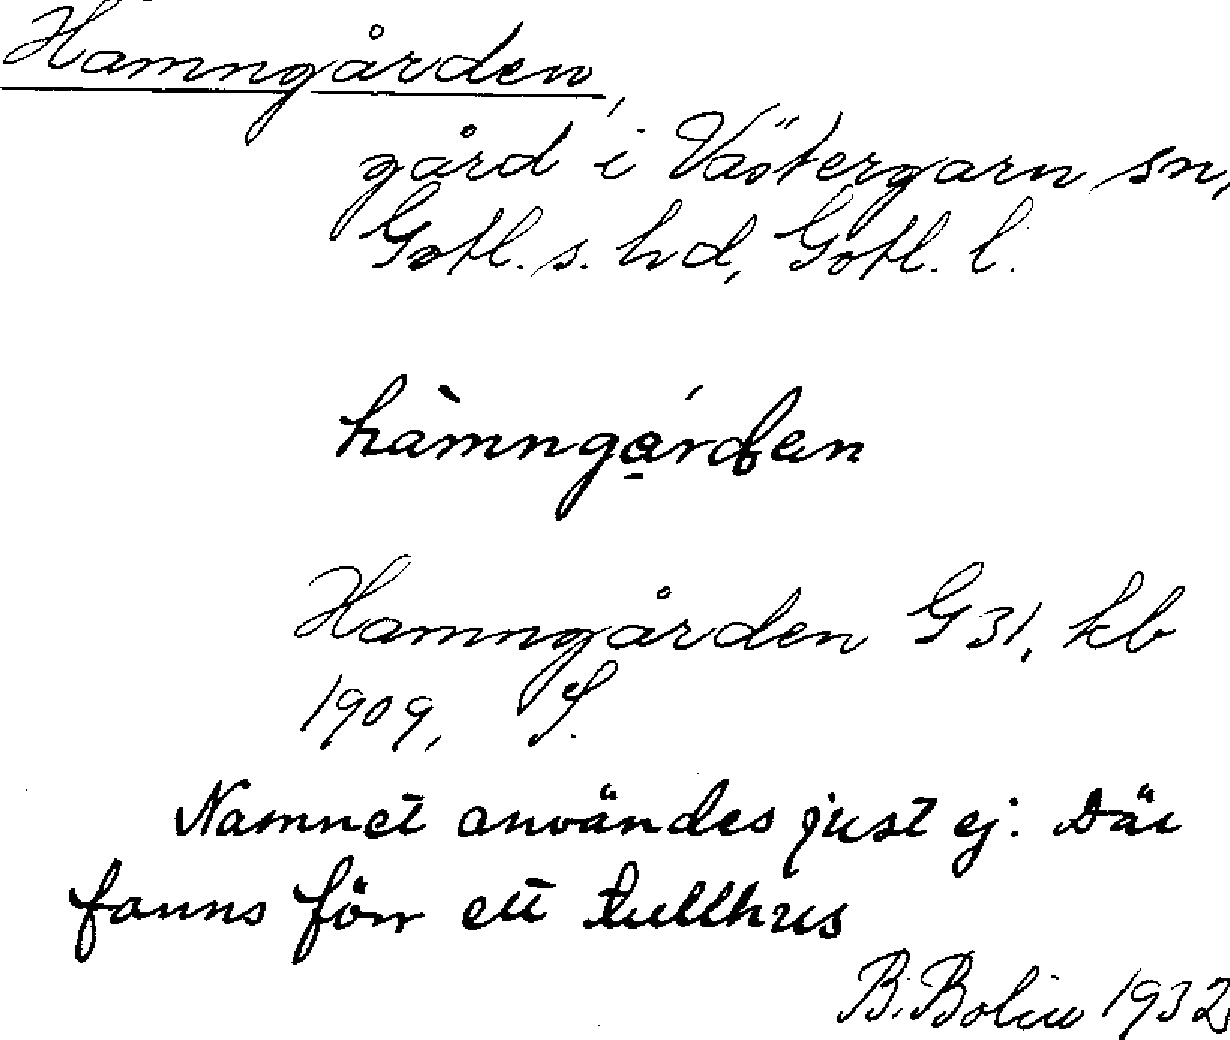 Hamngården,
gård i Västergarn sn,
Gotl. s. hd, Gotl. l.
hàmngá̱rdan
Hamngården G31, kb
1909, S.
Namnet användes just ej. Där
fanns förr ett tullhus
B. Bolin 1932